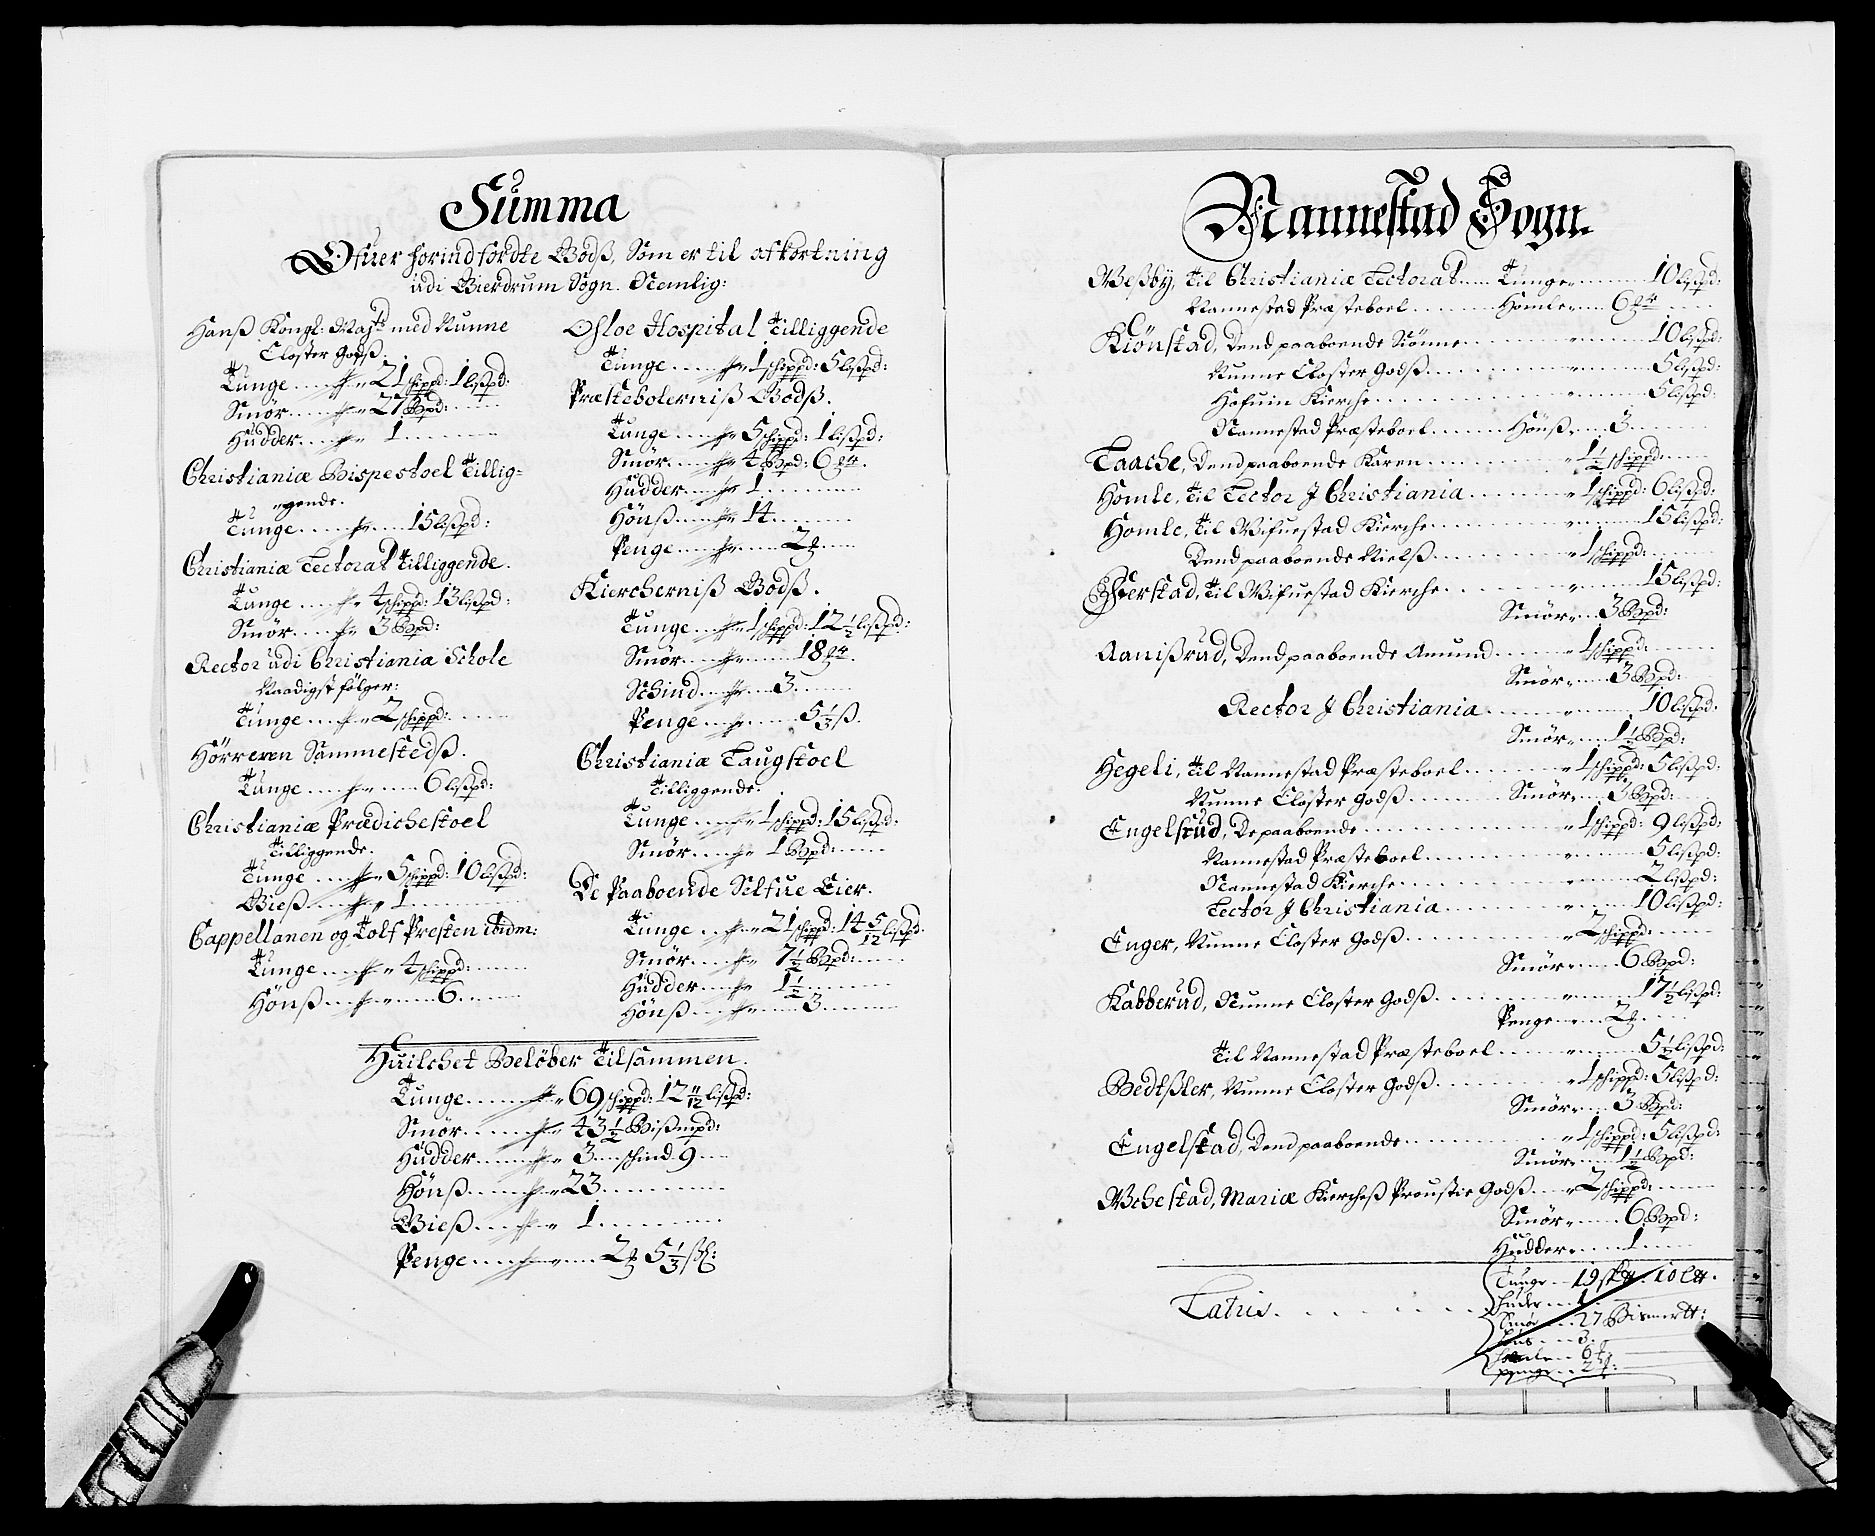 Summa
Ofuer forindførdte Godß, Som er til afkortning
udi Gierdrum Sogn. Nemlig:
Hanß Kongl: Mayts med Nunne
Closter Godß.
Tunge 21 schippd: 1 lißpd:
Smör 27 Bpd:
Hudder 1
Christianiæ Bispestoel Tillig-
gende.
Tunge 15 lißpd:
Christianiæ Lectorat Tilliggende.
Tunge 4 schippd: 13 lißpd:
Smör 3 Bpd:
Rector udi Christiania Schole
Naadigst følger:
Tunge 2 schippd:
Hörreren Sammestedß.
Tunge 6 lißpd:
Christianiæ Prædichestoel
Tilliggende.
Tunge 5 schippd: 10 lißpd:
Gieß 1
Cappellanen og Tolf Presten ibidm:
Tunge 4 schippd:
Hönß 6
Osloe Hospital Tilliggende
Tunge 1 schippd: 5 lißpd:
Præstebolerniß Godß.
Tunge 5 schippd: 1 lißpd:
Smör 4 Bpd: 6
Hudder 1
Hönß 14
Penge 2
Kircherniß Godß.
Tunge 1 schippd: 12 1/2 lißpd:
Smör 18
Schind 3
Penge 5 1/3 ß.
Christianiæ Laugstoel
Tilliggende.
Tunge 1 schippd: 15 lißpd:
Smör 1 Bpd:
De Paaboende Selfue Eier.
Tunge 21 schippd: 14 5/12 lißpd:
Smör 7 1/2 Bpd:
Hudder 1 1/2
Hönß 3
Huilchet Beløber Tilsammen.
Tunge 69 schippd: 12 11/12 lißpd:
Smör 43 1/2 Bißmpd:
Hudder 3 schind 9
Hönß 23
Gieß 1
Penge 2 5 1/3 ß:
Nannestad Sogn.
Weßby, til Christianiæ Lectorat Tunge 10 lißpd:
Nannestad Præsteboel Homle 6
Kiönstad, Dend paaboende 10 lißpd:
Nunne Closter Godß 5 lißpd:
Hofuin Kierche 5 lißpd:
Nannestad Præsteboel Hönß 3
Laache, Dend paaboende Karen 1 1/2 schippd:
Homle, til Lector J Christiania 1 schippd: 6 lißpd:
Homle, til Wifuestad Kierche 15 lißpd:
Dend paaboende Nielß 1 schippd:
til Wifuestad Kierche 15 lißpd:
Smör 3 Bpd:
Aanißrud, Dend paaboende Amund 1 schippd:
Smör 3 Bpd:
Rector J Christiania 10 lißpd:
Smör 1 1/2 Bpd:
Hegeli, til Nannestad Præsteboel 1 schippd: 5 lißpd:
Nunne Closter Godß Smör 3 Bpd:
Engelsrud, De paaboende 1 schippd: 9 lißpd:
Nannestad Præsteboel 5 lißpd:
Nannestad Kierche 2 lißpd:
Lector J Christiania 10 lißpd:
Enger, Nunne Closter Godß 2 schippd:
Smör 6 Bpd:
Kabberud, Nunne Closter Godß 17 1/2 lißpd:
Penge 2
til Nannestad Præsteboel 5 1/2 lißpd:
Bedtßler, Nunne Closter Godß 1 schippd: 5 lißpd:
Smör 3 Bpd:
Engelstad, Dend paaboende 1 schippd: 5 lißpd:
Smör 1 1/2 Bpd:
Wchestad, Mariæ Kiercheß Proustie Godß 2 schippd:
Smör 6 Bpd:
Hudder 1
Tunge 19 10
Latus. Huder 1
Smör 27 Bismer
Höns 3
Homle 6
Penge 2